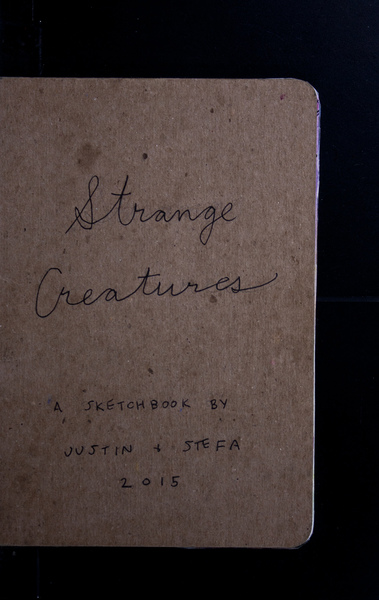 Strange
Creatures
A SKETCHBOOK BY
JUSTIN & STEFA
2015